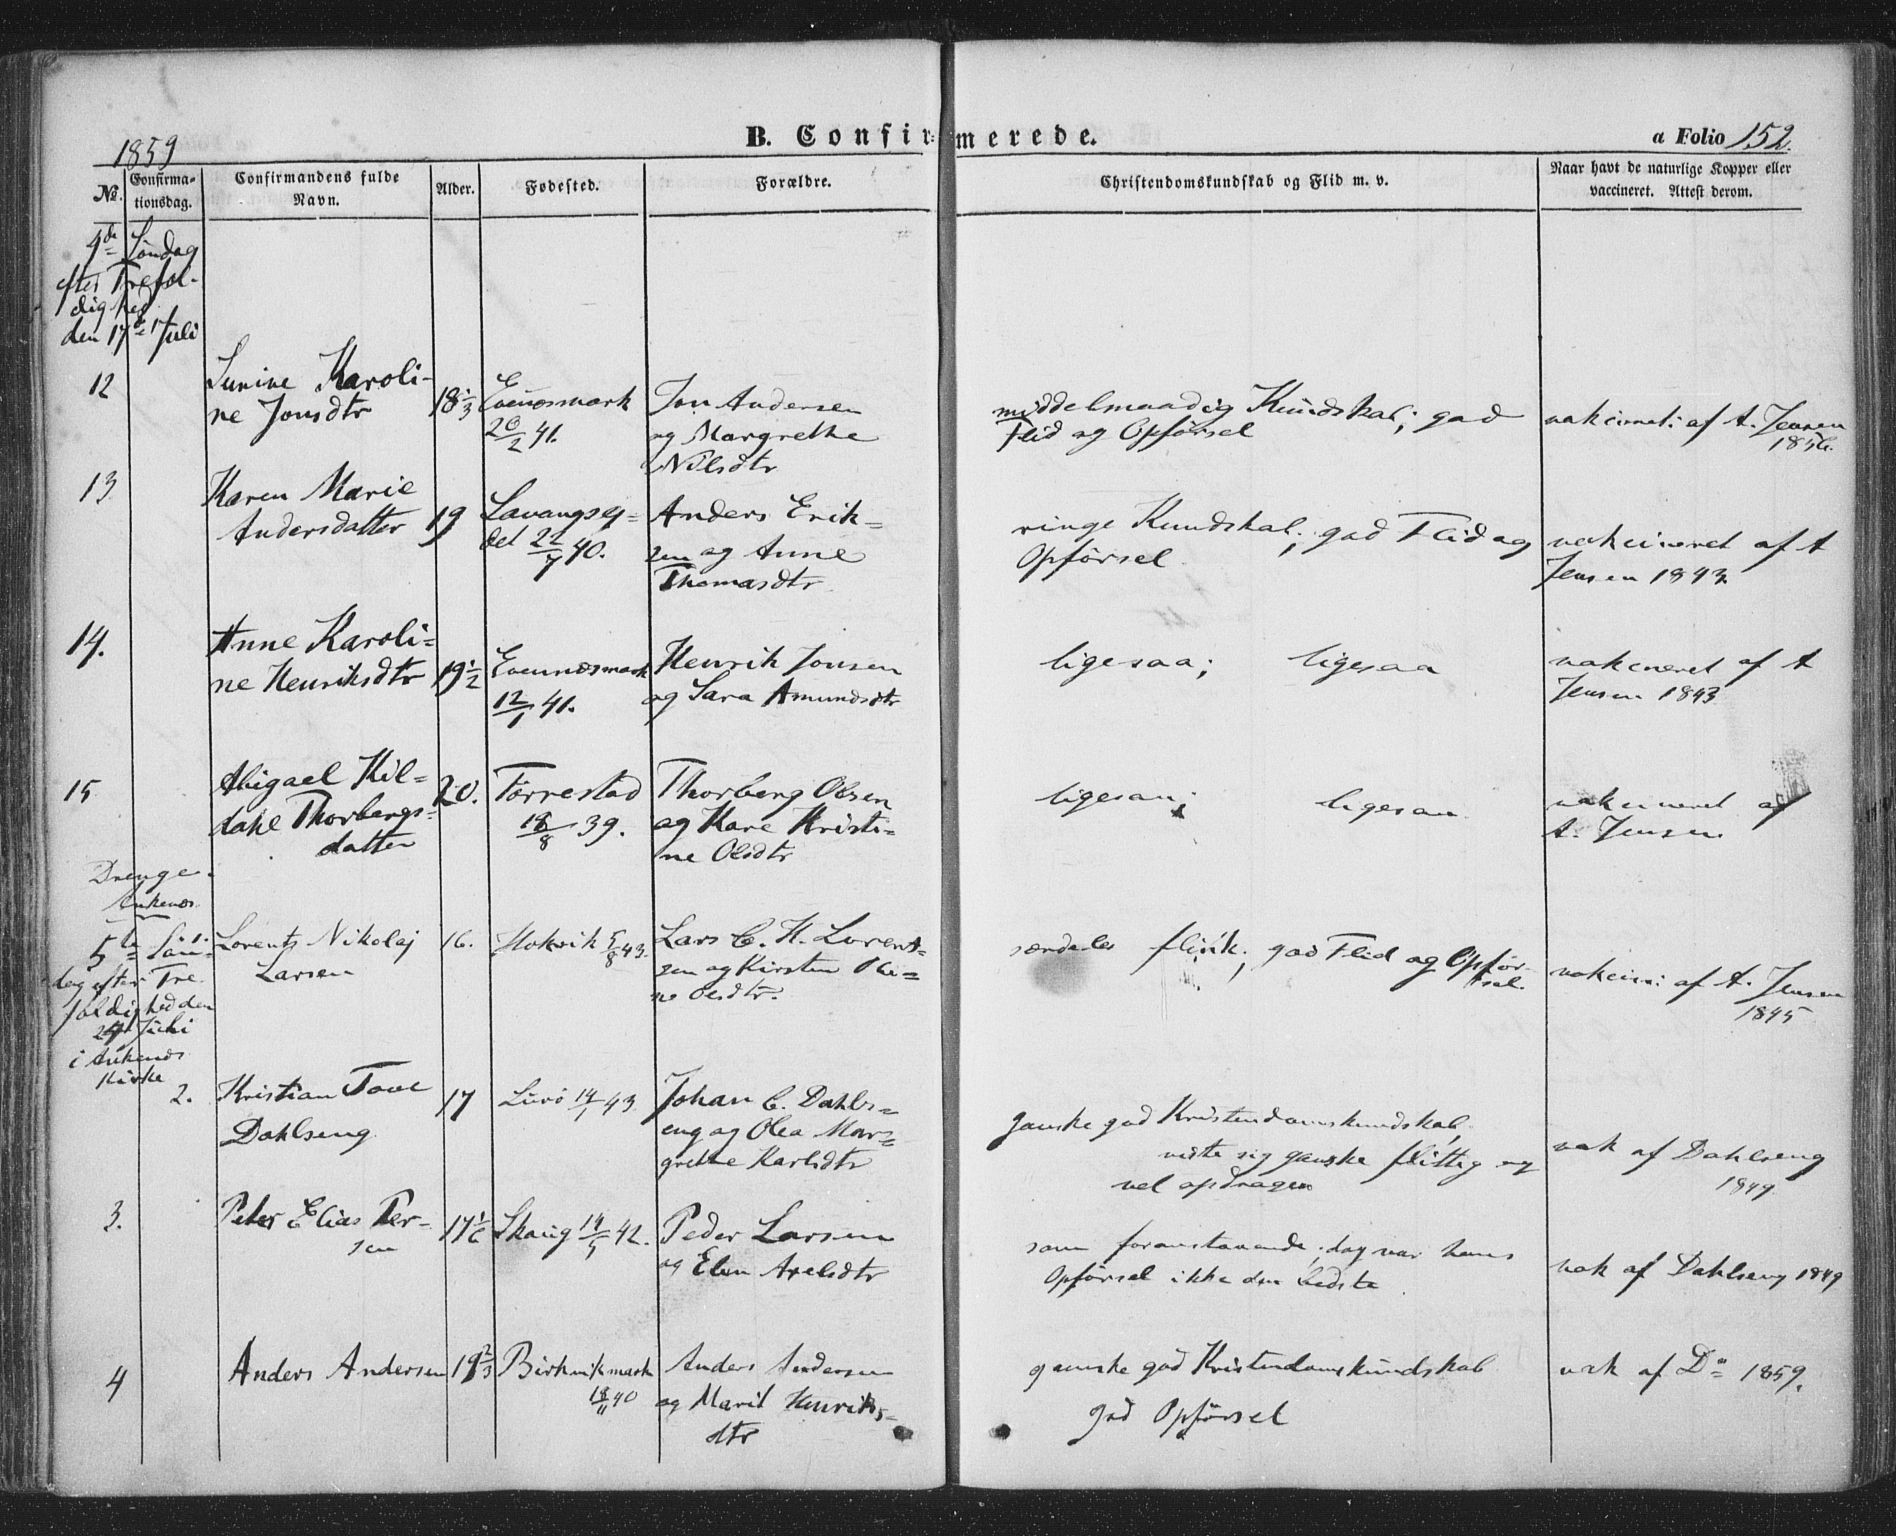 1859
B. Confirmerede.
a Folio 152.
No.
Confirma-
tionsdag.
Confirmandens fulde
Navn.
Alder.
Fødested.
Forældre.
Christendomskundskab og Flid m. v.
Naar havt de naturlige Kopper eller
vaccineret. Attest derom.
4de Söndag
efter Trefol-
dighed
den 17de Juli
12
Karoli-
ne Jonsdtr
18 1/3
Evenesmark
20/2 41.
Jon Andersen
og Margrethe
Nilsdtr
middelmaadig Kundskab; god
Flid og Opförsel
vakcinet: af A. Jensen
13
Karen Marie
Andersdatter
19
Lavangsej-
det 22/7 40.
Anders Erik-
sen og Anne
Thomasdtr
ringe Kundskab; god Flid og
Opförsel
vakcineret af A
Jensen 1843
14.
Anne Karoli-
ne Henriksdtr
19 1/2
Evenæsmark
12/1 41.
Henrik Jonsen
og Sara Amundsdtr
ligesaa; ligesaa
vakcineret af A
Jensen 1843
15
Abigael Kil-
dahl Thorbergs-
datter
20.
Torrestad
18/8 39.
Thorberg Olsen
og Kare Kristi-
ne Olsdtr
ligesaa; ligesaa
vakcineret af
A. Jensen
Drenge
Ankenes
5te Sön-
dag efter Tre
foldighed den
24de Juli
i Ankenes
Kirke
Lorents Nikolaj
Larsen
16.
5/8 43.
Lars C. H. Lorent-
sen og Kirsten Oli-
ne Olsdtr.
særdeles flink; god Flid og Opför-
sel.
vakcin: af A. Jensen
1845
2.
Kristian Tove
Dahlseng
17
Lurö 14/1 43.
Johan C. Dahls-
eng og Olea Mar-
grethe Karlsdtr
ganske god Kristendomskundskab,
viste sig ganske flittig og
vel opdragen
vak af Dahlseng
1849
3.
Peter Elias Per-
sen
17 1/6
Skaug 14/5 42.
Peder Larsen
og Elen Axelsdtr
som foranstaaende; dog var hans
Opförsel ikke den bedste
vak af Dahlseng 1849
4
Anders Andersen
19 2/3
Birkvikmark
18/11 40
Anders Andersen
og Marit Henriks-
dtr
ganske god Kristendomskundskab
god Opförsel
vak af Do 1859.